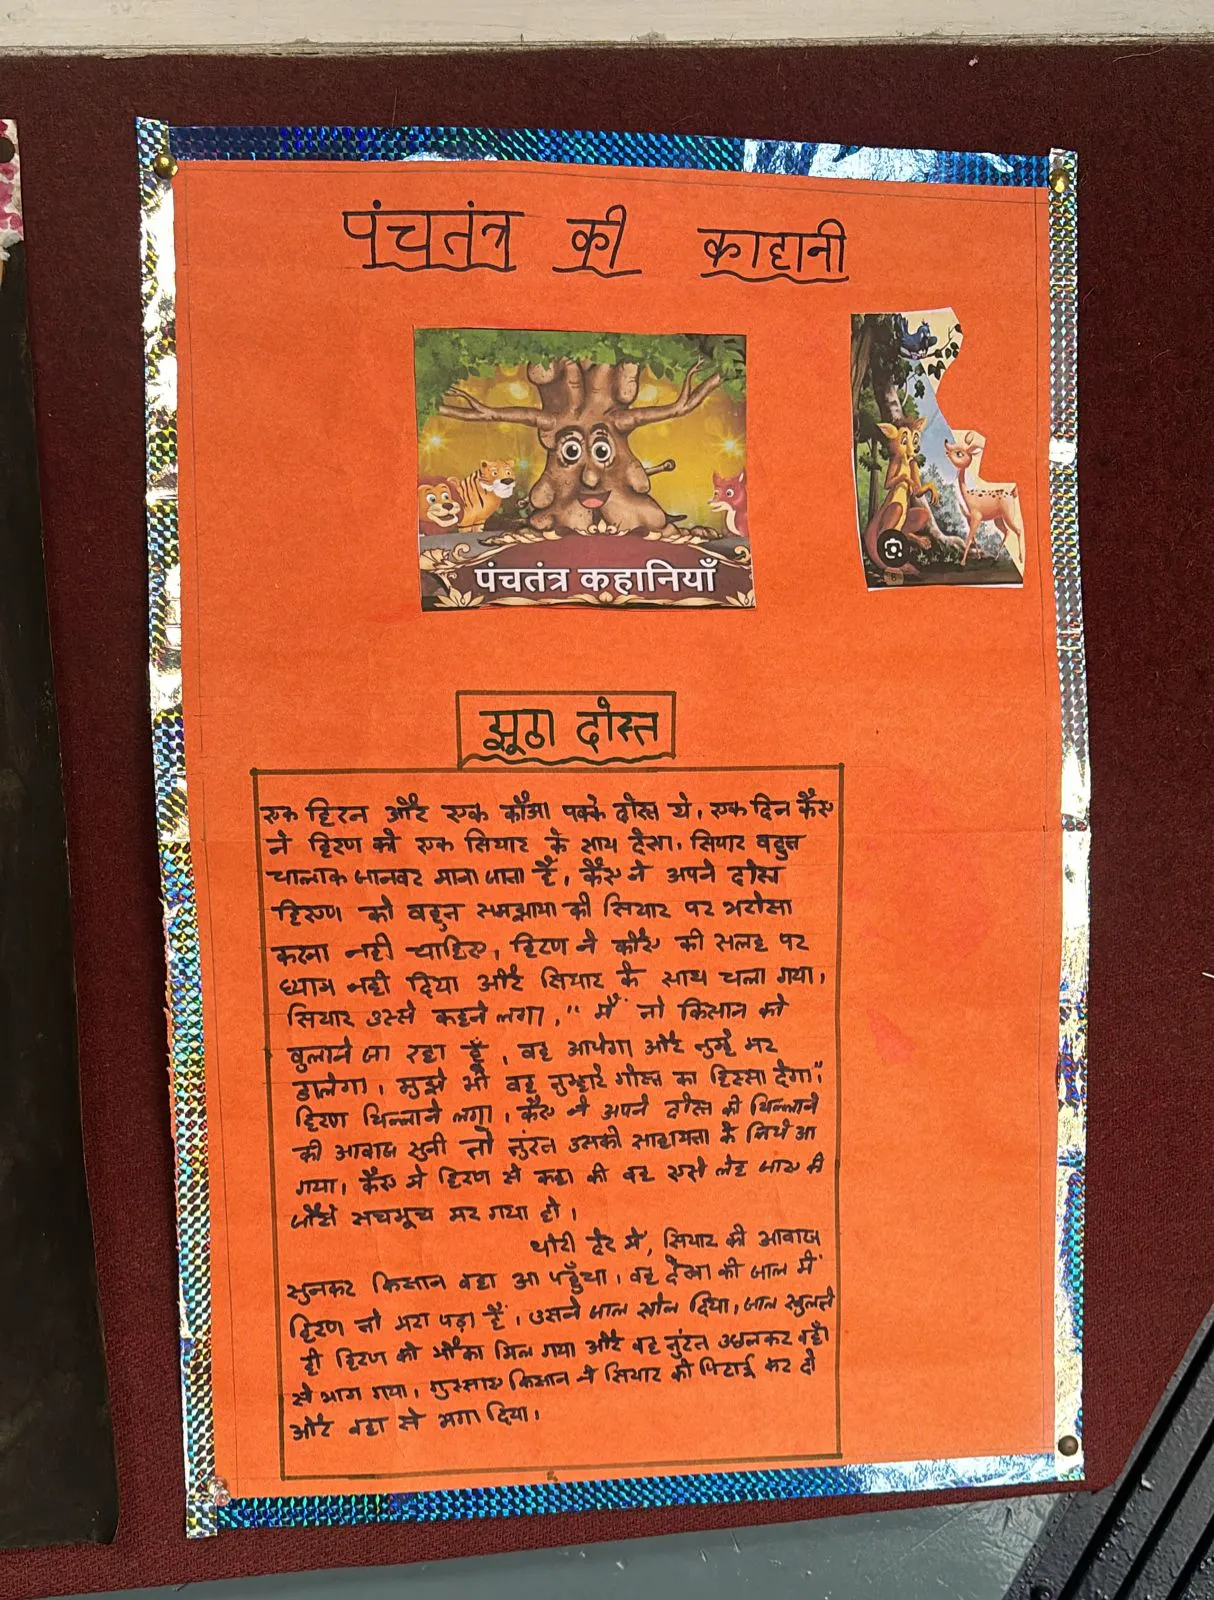 पंचतंत्र की काहानी
पंचतंत्र कहानियाँ
झूठा दोस्त
एक हिरन और एक कौआ पक्के दोस्त थे, एक दिन कैए
ने हिरण को एक सियार के साथ देखा, सियार बहुत
चालाक जानवर माना जाता है, कैए ने अपने दोस्त
हिरण को बहुत समझाया की सियार पर भरोसा
करना नही चाहिए, हिरण ने कौए की सलह पर
ध्यान नही दिया और सियार के साथ चला गया,
सियार उस्से कहने लगा, " मैं तो किसान को
बुलाने जा रहा हूँ, वह आयेगा और तुम्हे मर
डालेगा, मुझे भी वह तुम्हारे गोस्त का हिस्सा देगा"
हिरण चिल्लाने लगा, कैए ने अपने दोस्त की चिल्लाने
की आवाज सुनी तो तुरंत उसकी साहायता के लिये आ
गया, कैए ने हिरण से कहा की वह एसे लेट जाए की
जौसे सचमूच मर गया हो,
थोरी देर में, सियार की आवाज
सुनकर किसान वहा आ पहुँचा, वह देखा की जाल में
हिरण तो मरा पड़ा हैं, उसने जाल खोल दिया, जाल खुलते
ही हिरण को मौका मिल गया और वह तुरंत उछलकर वहाँ
से भाग गया, गुस्साए किसान ने सियार की पिटाई कर दी
और वहा से भगा दिया,